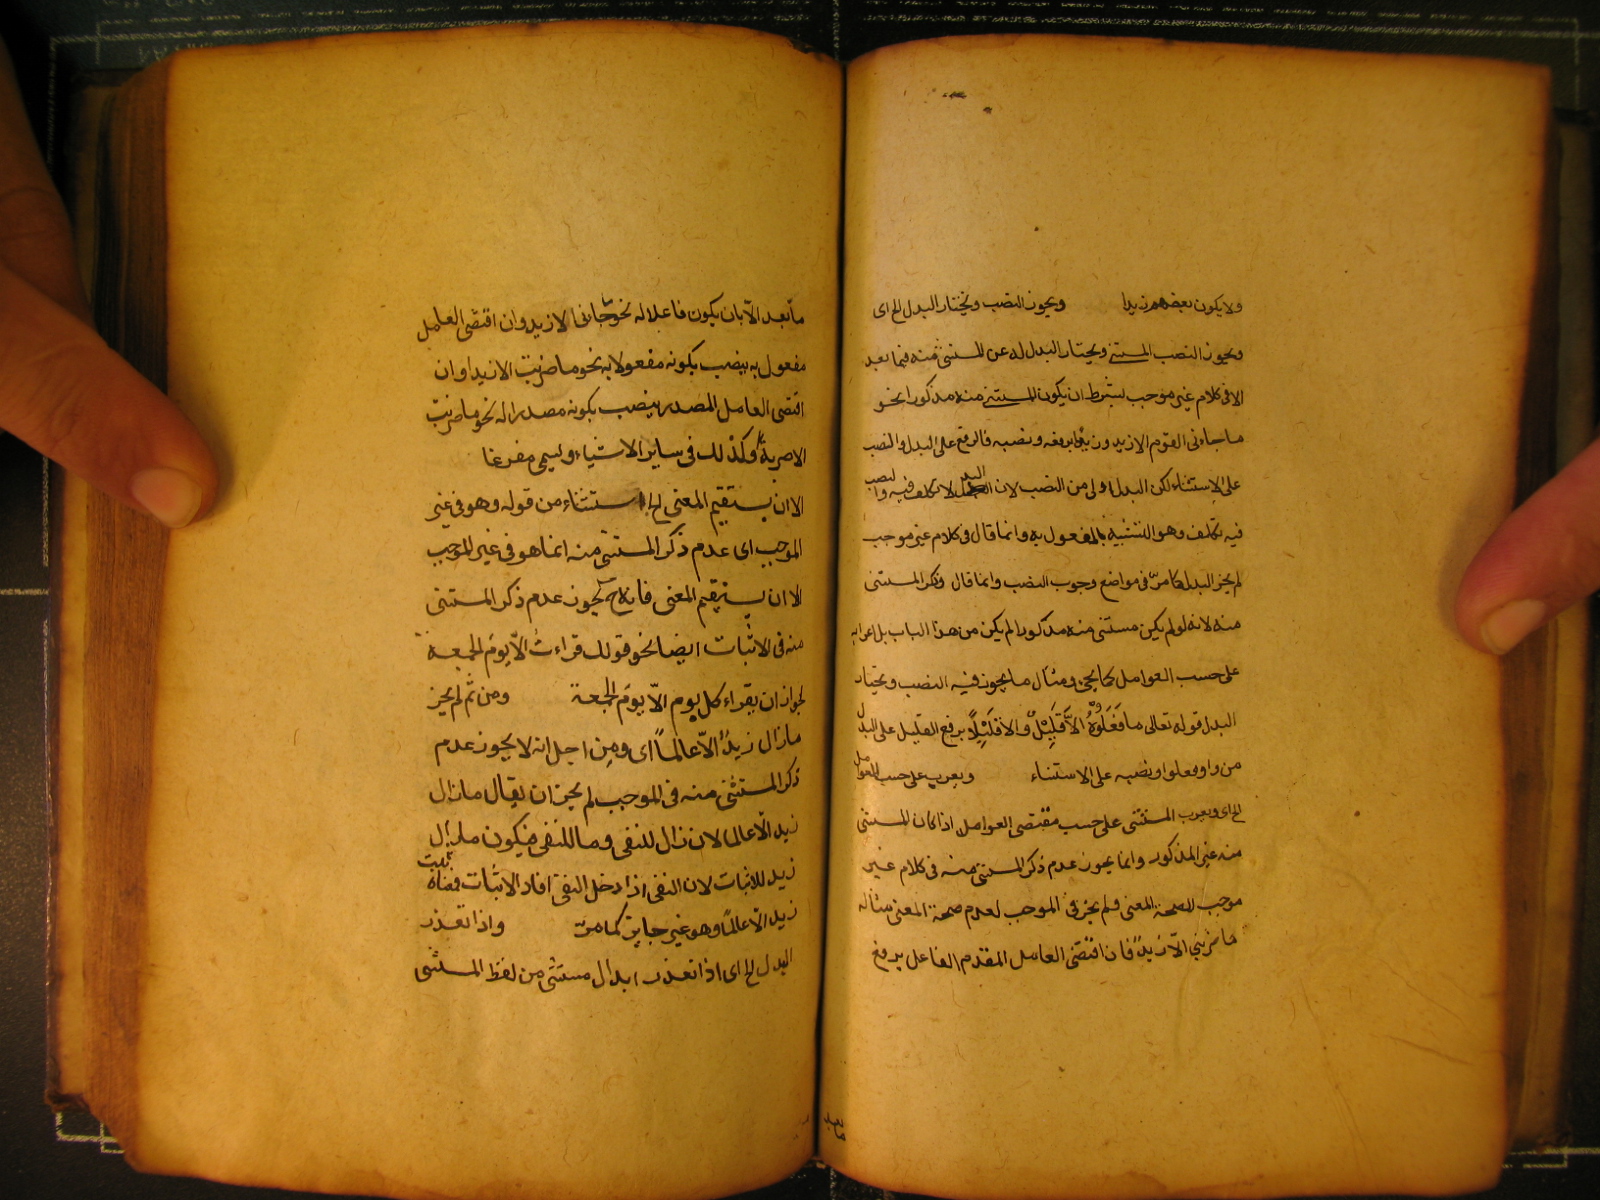 ولا يكون بعضهم زيدا ويجوز النصب ويختار البدل الخ اى
ويجوز النصب المستثنى ويختار البدل له عن المستثنى منه فيما بعد
الا فى كلام غير موجب بشرط ان يكون المستثنى منه مذكورا نحو
ما جاءنى القوم الا زيد وزيدا برفعه ونصبه فالرفع على البدل والنصب
على الاستثناء لكن البدل اولى من النصب لان البدل لا تكلف فيه والنصب
فيه تكلف وهو التشبيه بالمفعول به وانما قال فى كلام غير موجب
لم يجز البدل كما مر فى مواضع وجوب النصب وانما قال وذكر المستثنى
منه لانه لو لم يكن مستثنى منه مذكورا لم يكن من هذا الباب بل اعرابه
على حسب العوامل كما يجئ ومثال ما يجوز فيه النصب ويختار
البدل قوله تعالى ما فَعَلُوهُ اِلاَّ قَلِيْلٌ والا قَلِيْلًا برفع القليل على البدل
من واو فعلوا ونصبه على الاستثناء ويعرب على حسب العوامل
الخ اى ويعرب المستثنى على حسب مقتضى العوامل اذا كان المستثنى
منه غير المذكور وانما يجوز عدم ذكر المستثنى منه فى كلام غير
موجب لصحة المعنى ولم يجز فى الموجب لعدم صحة المعنى مثاله
ما ضربنى الاّ زيدٌ فان اقتضى العامل المقدم الفاعل يرفع
ما بعد
ما بعد الاّ بان يكون فاعلا له نحو ما جاءنى الا زيد وان اقتضى العامل
مفعول به ينصب بكونه مفعولا به نحو ما ضربت الا زيدا وان
اقتضى العامل المصدر ينصب بكونه مصدرا له نحو ما ضربت
الا ضربةً وكذلك فى ساير الاشياء ويسمى مفرغا
الا ان يستقيم المعنى الخ استثناء من قوله وهو فى غير
الموجب اى عدم ذكر المستثنى منه انما هو فى غير الموجب
الا ان يستقيم المعنى فانه ح يجوز عدم ذكر المستثنى
منه فى الاثبات ايضا نحو قولك قراءت الاّ يوم الجمعة
لجواز ان يقراء كل يوم الاّ يوم الجمعة ومن ثَم لم يجز
ما زال زيدٌ الاّ عالماً اى ومن اجل انه لا يجوز عدم
ذكر المستثنى منه فى الموجب لم يجز ان يقال ما زال
زيد الاّ عالما لان زال للنفى وما للنفى فيكون ما زال
زيد للاثبات لان النفى اذا دخل النفى افاد الاثبات فمعناه ثبت
زيد الاّ عالمًا وهو غير جايز كما مرّ واذا تعذر
البدل الخ اى اذا تعذر ابدال مستثنى من لفظ المستثنى